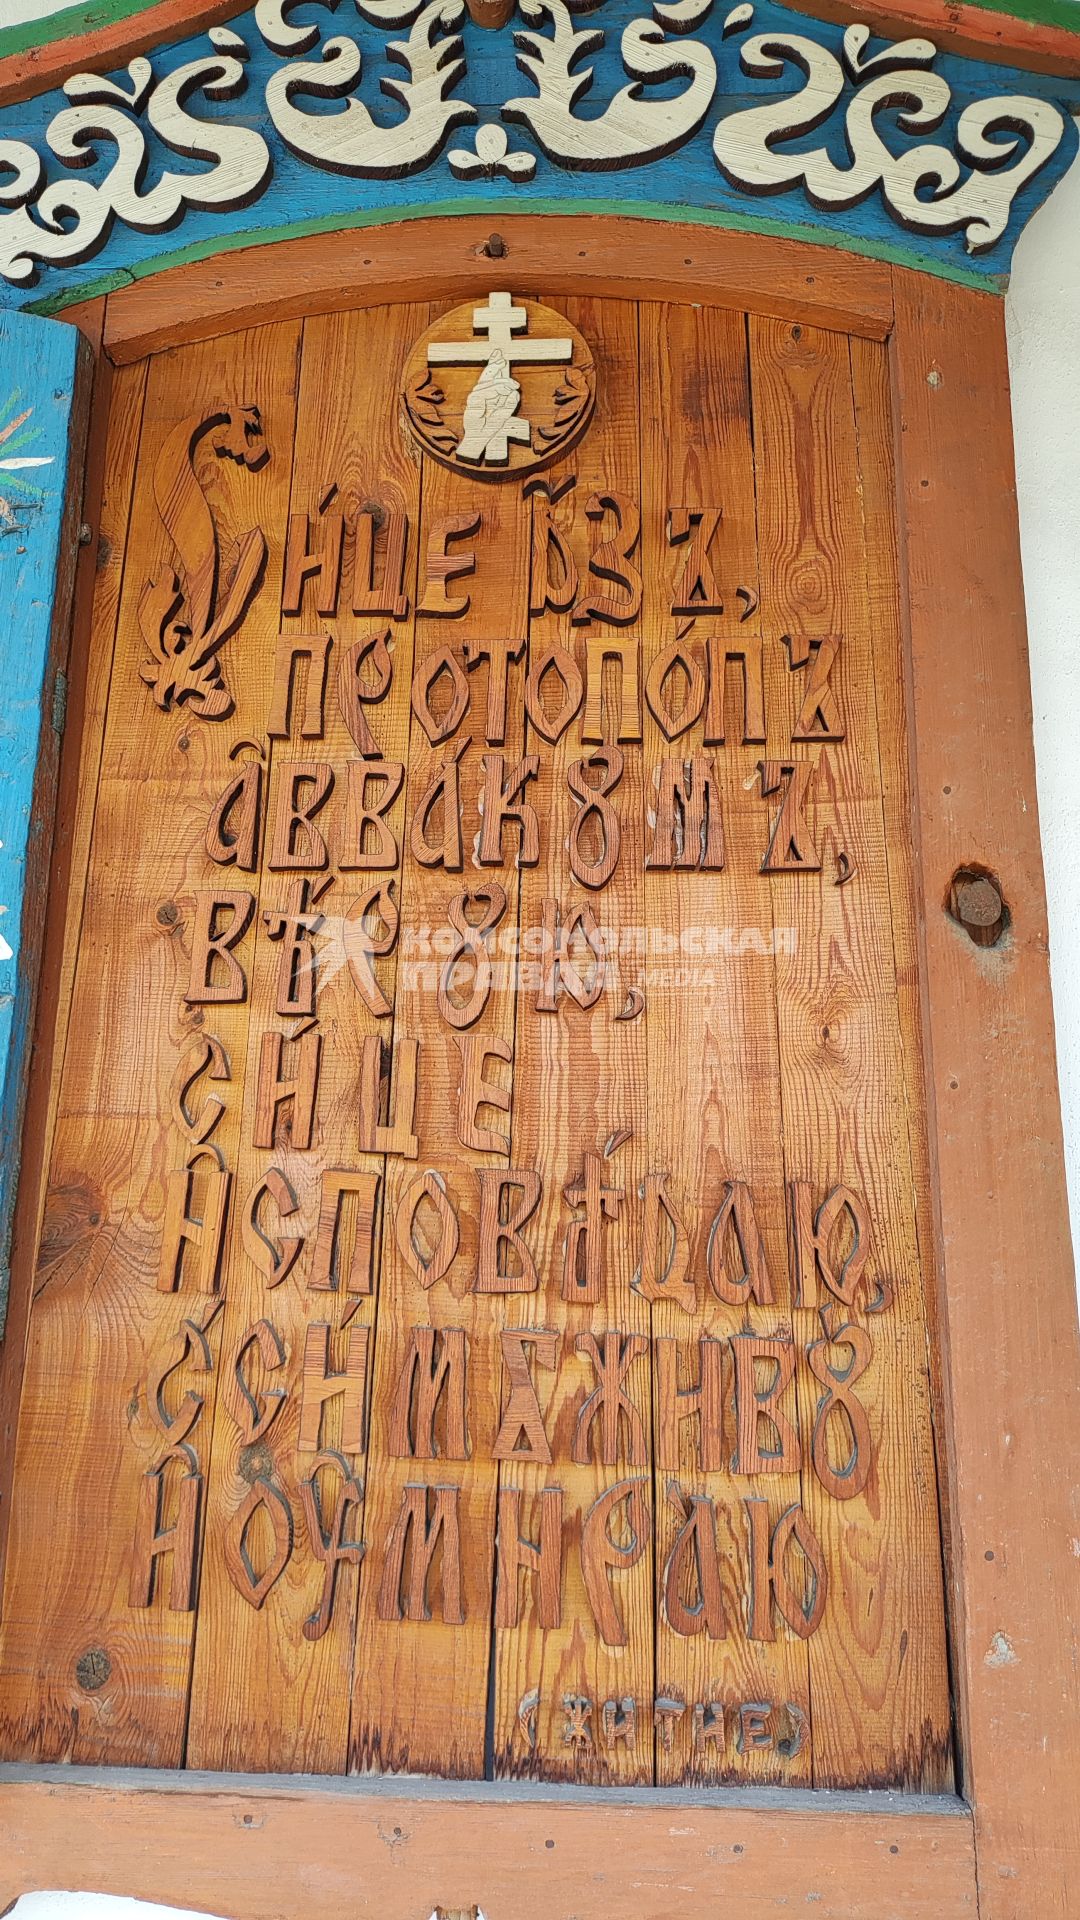 Си́це а҆́зъ,
протопо́пъ
а҆вва́кꙋмъ,
вѣ́рꙋю,
си́це
и҆сповѣ́даю,
с̾ си́мъ живꙋ̀
и҆ оу҆мираю
(житие)
КОМСОМОЛЬСКАЯ
ПРАВДА MEDIA